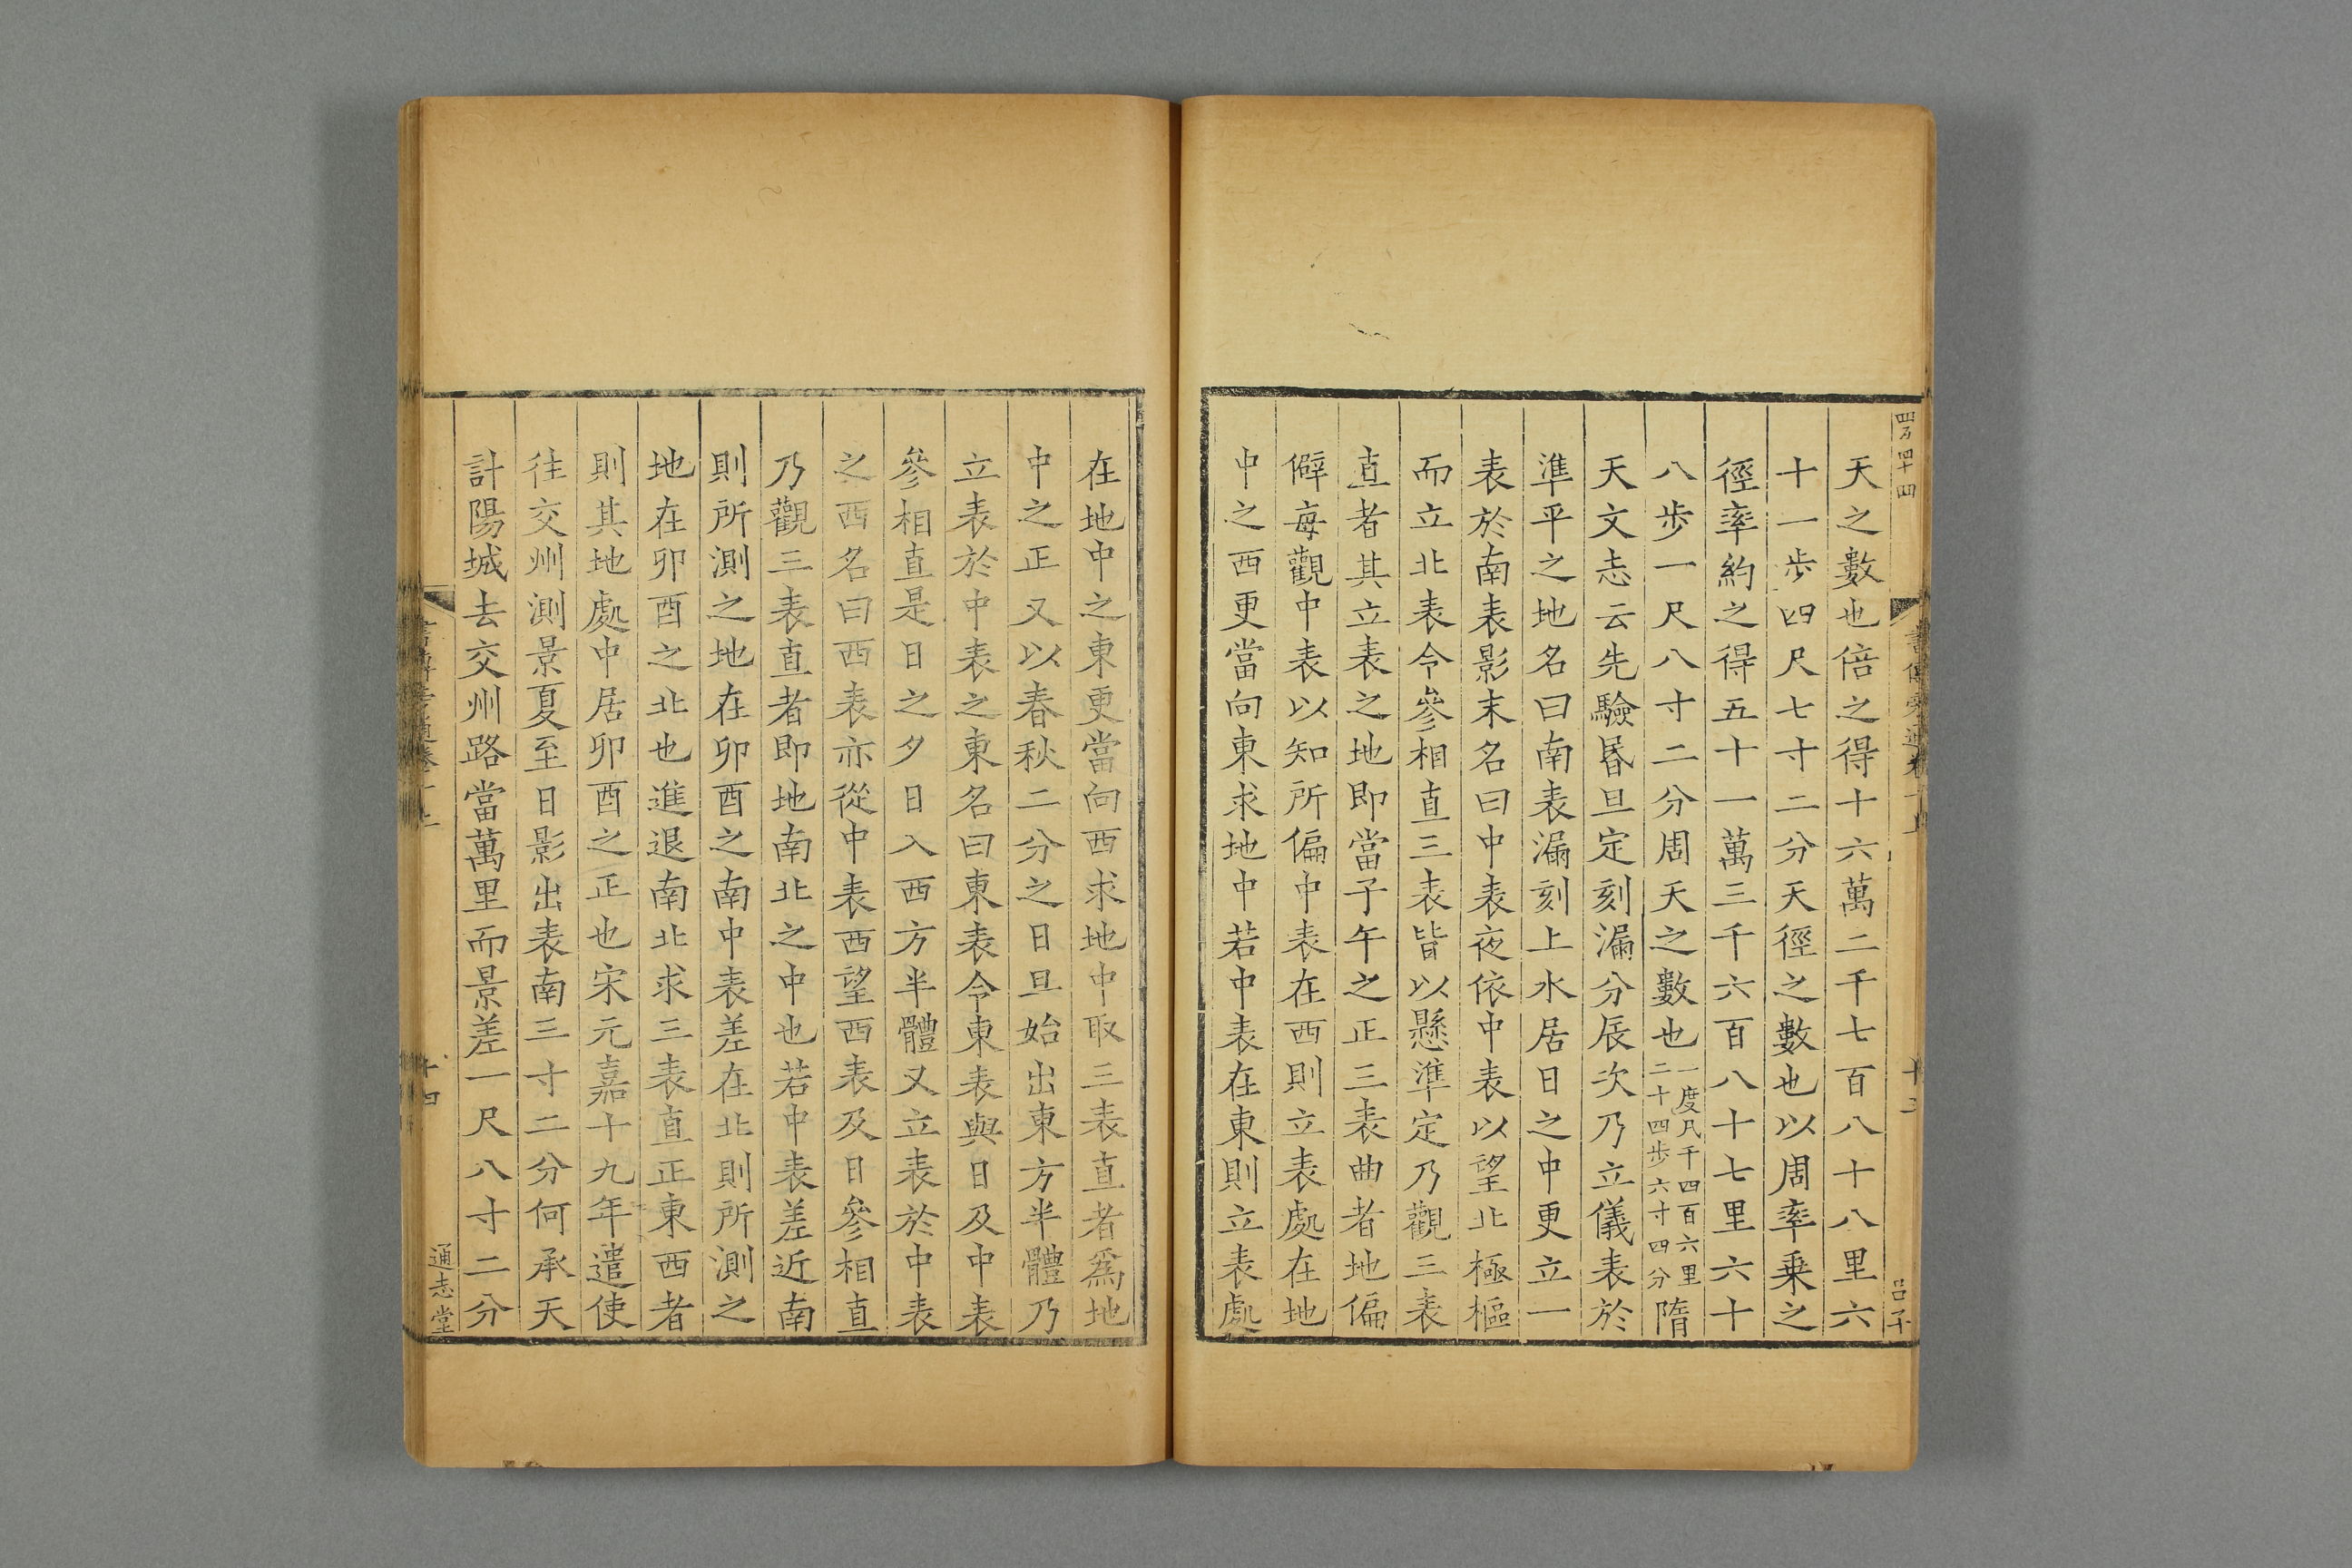 四万四十四
天之數也倍之得十六萬二千七百八十八里六
十一步四尺七寸二分天徑之數也以周率乗之
徑率約之得五十一萬三千六百八十七里六十
八步一尺八寸二分周天之數也一度凡千四百六里二十四步六寸四分隋
天文志云先驗昬旦定刻漏分辰次乃立儀表於
準平之地名曰南表漏刻上水居日之中更立一
表於南表影末名曰中表夜依中表以望北極樞
而立北表令參相直三表皆以懸準定乃觀三表
直者其立表之地即當子午之正三表曲者地偏
僻每觀中表以知所偏中表在西則立表處在地
中之西更當向東求地中若中表在東則立表處
書傳旁通卷一上
十三
呂子
在地中之東更當向西求地中取三表直者爲地
中之正又以春秋二分之日旦始出東方半體乃
立表於中表之東名曰東表令東表與日及中表
參相直是日之夕日入西方半體又立表於中表
之西名曰西表亦從中表西望西表及日參相直
乃觀三表直者即地南北之中也若中表差近南
則所測之地在卯酉之南中表差在北則所測之
地在卯酉之北也進退南北求三表直正東西者
則其地處中居卯酉之正也宋元嘉十九年遣使
往交州測景夏至日影出表南三寸二分何承天
計陽城去交州路當萬里而景差一尺八寸二分
十四
通志堂